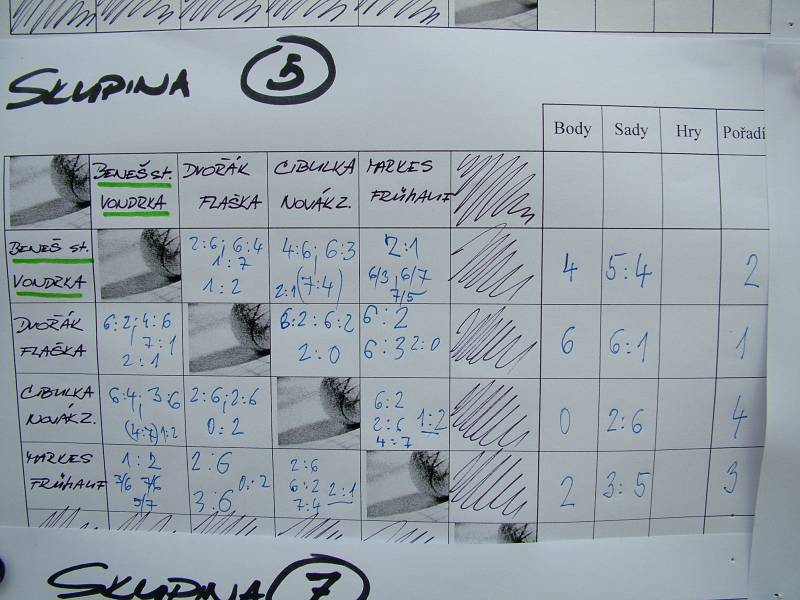 SKUPINA 5
Body Sady Hry Pořadí
BENEŠ st. DVOŘÁK CIBULKA MARKES
VONDRKA FLAŠKA NOVÁK Z. FRÜHAUF
BENEŠ st. 2:6; 6:4 4:6; 6:3 2:1
1:7 6/3 6/7
VONDRKA 1:2 2:1 (7:4) 7/5 4 5:4 2
DVOŘÁK 6:2; 4:6 6:2 : 6:2 6:2
7:1
FLAŠKA 2:1 2:0 6:3 2:0 6 6:1 1
CIBULKA 6:4; 3:6 2:6; 2:6 6:2
2:6 1:2
NOVÁK Z. (4:7) 1:2 0:2 4:7 0 2:6 4
MARKES 1:2 2:6 2:6
FRÜHAUF 3/6 7/6 0:2 6:2 2:1
5/7 3:6 7:4 2 3:5 3
SKUPINA 7